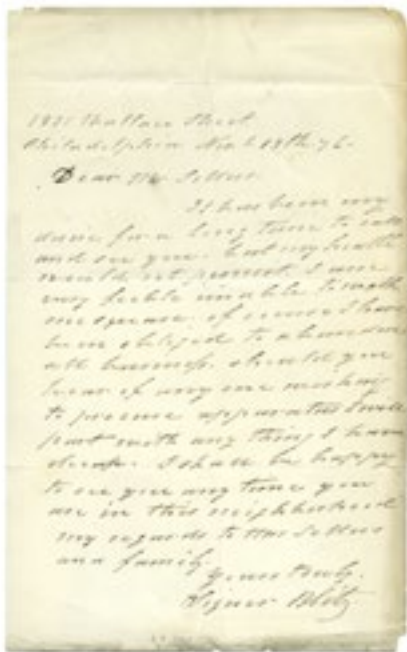 1821 Wallace Street
Philadelphia Nov 18th 76.
Dear Mr Sellers
It has been my
desire for a long time to call
and see you. but my health
would not permit. I am
very feeble unable to walk
one square. of course I have
been obliged to abandon
all business. should you
hear of any one wishing
to procure apparatus I will
part with any thing I have
cheap. I shall be happy
to see you any time you
are in this neighborhood
my regards to Mrs Sellers
and family.
Yours truly.
Signor Blitz